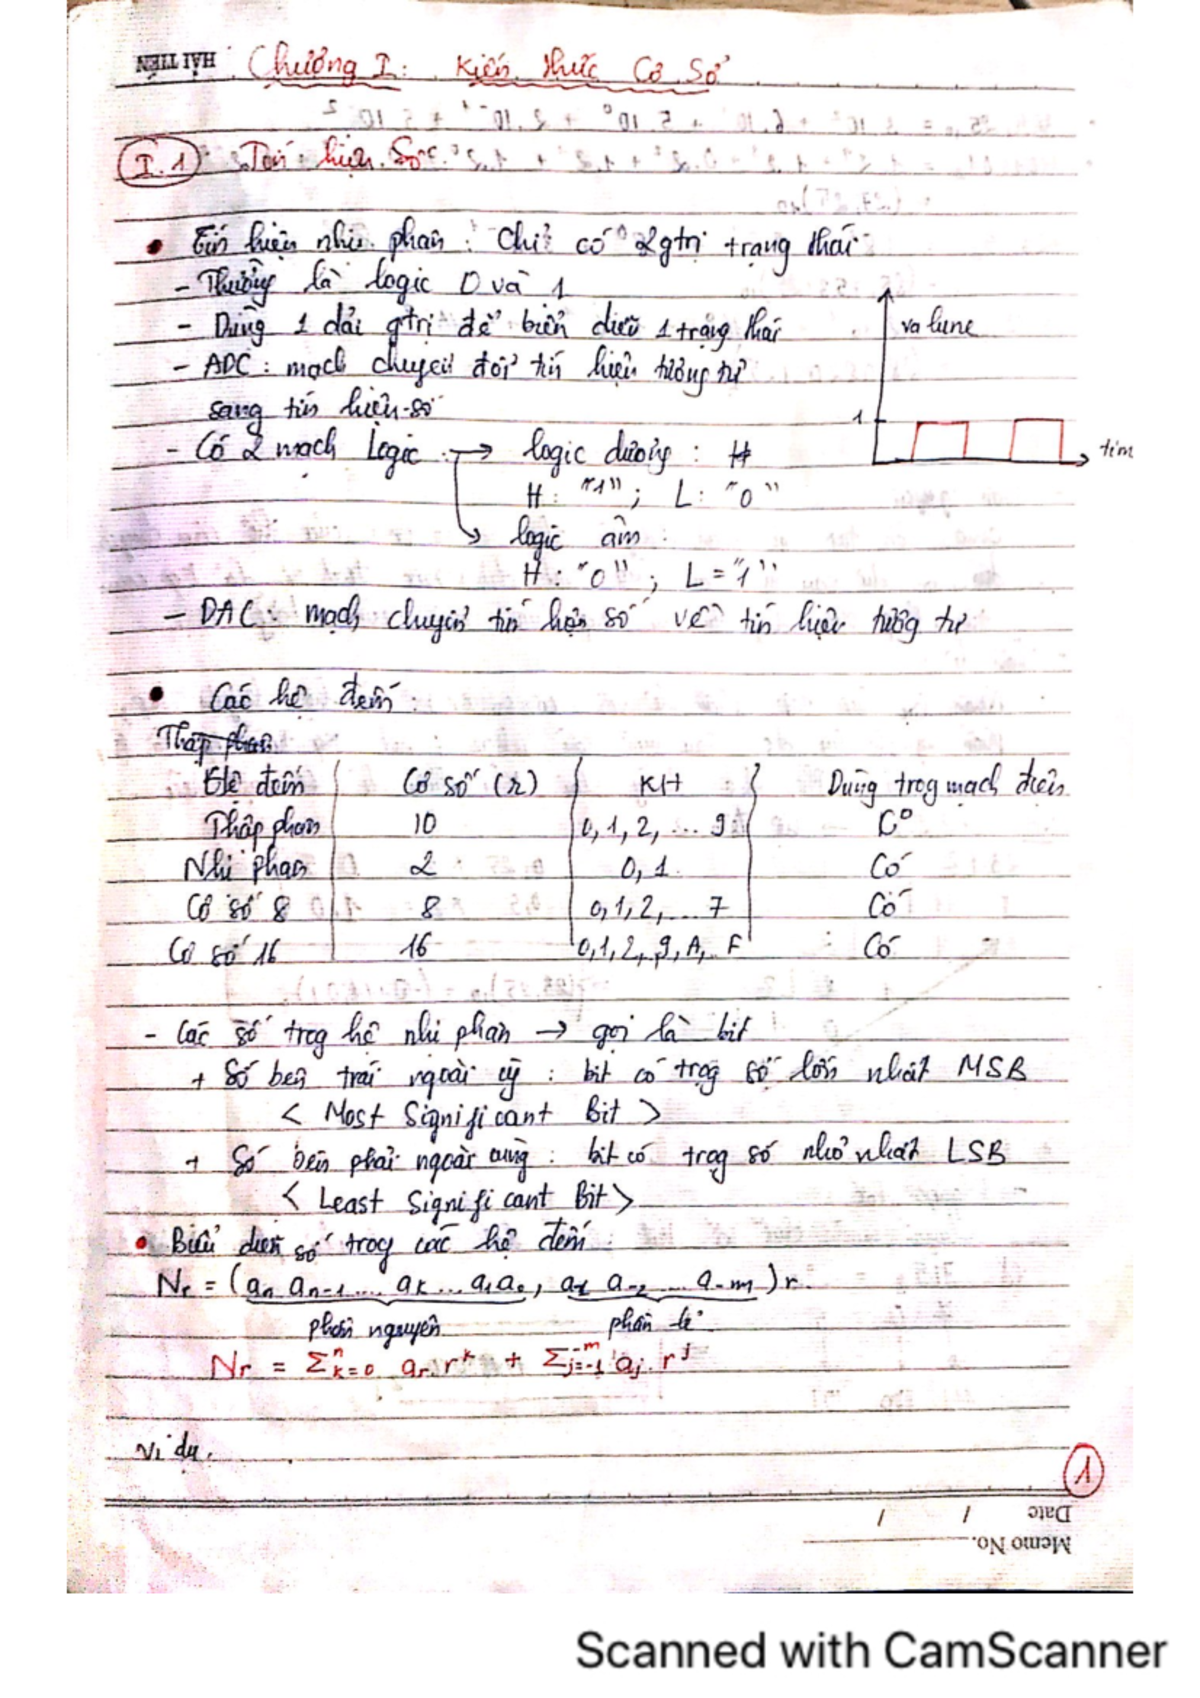 HẢI TIẾN
Chương I: Kiến thức Cơ Sở
I.1 Tín hiệu Số
• Tín hiệu nhị phân: Chỉ có 2 gtrị trạng thái
- Thường là logic 0 và 1
- Dùng 1 dải gtrị để biển diễn 1 trạng thái
- ADC: mạch chuyển đổi tín hiệu tương tự
sang tín hiệu số
value
1
time
- Có 2 mạch Logic → logic dương: H
H: "1"; L: "0"
→ logic âm:
H: "0"; L = "1"
- DAC: mạch chuyển tín hiệu số về tín hiệu tương tự
• Các hệ đếm:
Thập phân
Hệ đếm Cơ số (r) KH Dùng trog mạch điện
Thập phân 10 0, 1, 2, ... 9 Có
Nhị phân 2 0, 1 Có
Cơ số 8 8 0, 1, 2, ... 7 Có
Cơ số 16 16 0, 1, 2, 9, A, F Có
- Các số trog hệ nhị phân → gọi là bit
+ Số bên trái ngoài cg̃: bit có trọg số lớn nhất MSB
< Most Significant Bit >
+ Số bên phải ngoài cùng: bit có trọg số nhỏ nhất LSB
< Least Significant Bit >
• Biểu diễn số trog các hệ đếm:
Nr = (an an-1 ... ak ... a1 a0, a-1 a-2 ... a-m)r
phần nguyên phần lẻ
Nr = Σⁿk=0 ar.r^k + Σ^-m j=-1 aj.r^j
Ví dụ:
1
Date / /
Memo No.
Scanned with CamScanner